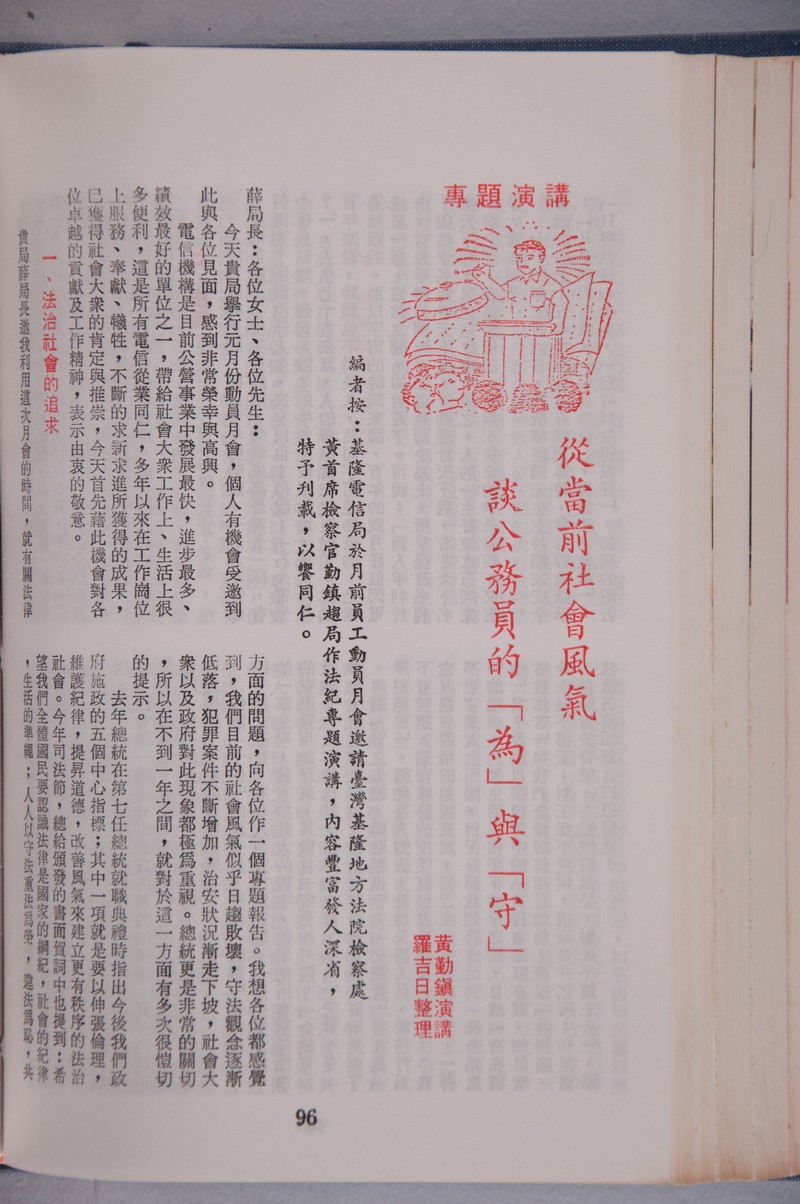 專題演講
從當前社會風氣
談公務員的「為」與「守」
黃勤鎮演講
羅吉日整理
編者按：基隆電信局於月前員工動員月會邀請臺灣基隆地方法院檢察處
黃首席檢察官勤鎮趨局作法紀專題演講，內容豐富發人深省，
特予刋載，以饗同仁。
薛局長：各位女士、各位先生：
今天貴局擧行元月份動員月會，個人有機會受邀到
此與各位見面，感到非常榮幸與高興。
電信機構是目前公營事業中發展最快，進步最多、
績效最好的單位之一，帶給社會大衆工作上、生活上很
多便利，這是所有電信從業同仁，多年以來在工作崗位
上服務、奉獻、犧牲，不斷的求新求進所獲得的成果，
已獲得社會大衆的肯定與推崇，今天首先藉此機會對各
位卓越的貢獻及工作精神，表示由衷的敬意。
一、法治社會的追求
貴局薛局長邀我利用這次月會的時間，就有關法律
方面的問題，向各位作一個專題報告。我想各位都感覺
到，我們目前的社會風氣似乎日趨敗壞，守法觀念逐漸
低落，犯罪案件不斷增加，治安狀況漸走下坡，社會大
衆以及政府對此現象都極爲重視。總統更是非常的關切
，所以在不到一年之間，就對於這一方面有多次很愷切
的提示。
去年總統在第七任總統就職典禮時指出今後我們政
府施政的五個中心指標；其中一項就是要以伸張倫理，
維護紀律，提昇道德，改善風氣來建立更有秩序的法治
社會。今年司法節，總統頒發的書面賀詞中也提到：希
望我們全體國民要認識法律是國家的綱紀，社會的紀律
，生活的準繩；人人以守法重法爲榮，違法爲恥，共
96